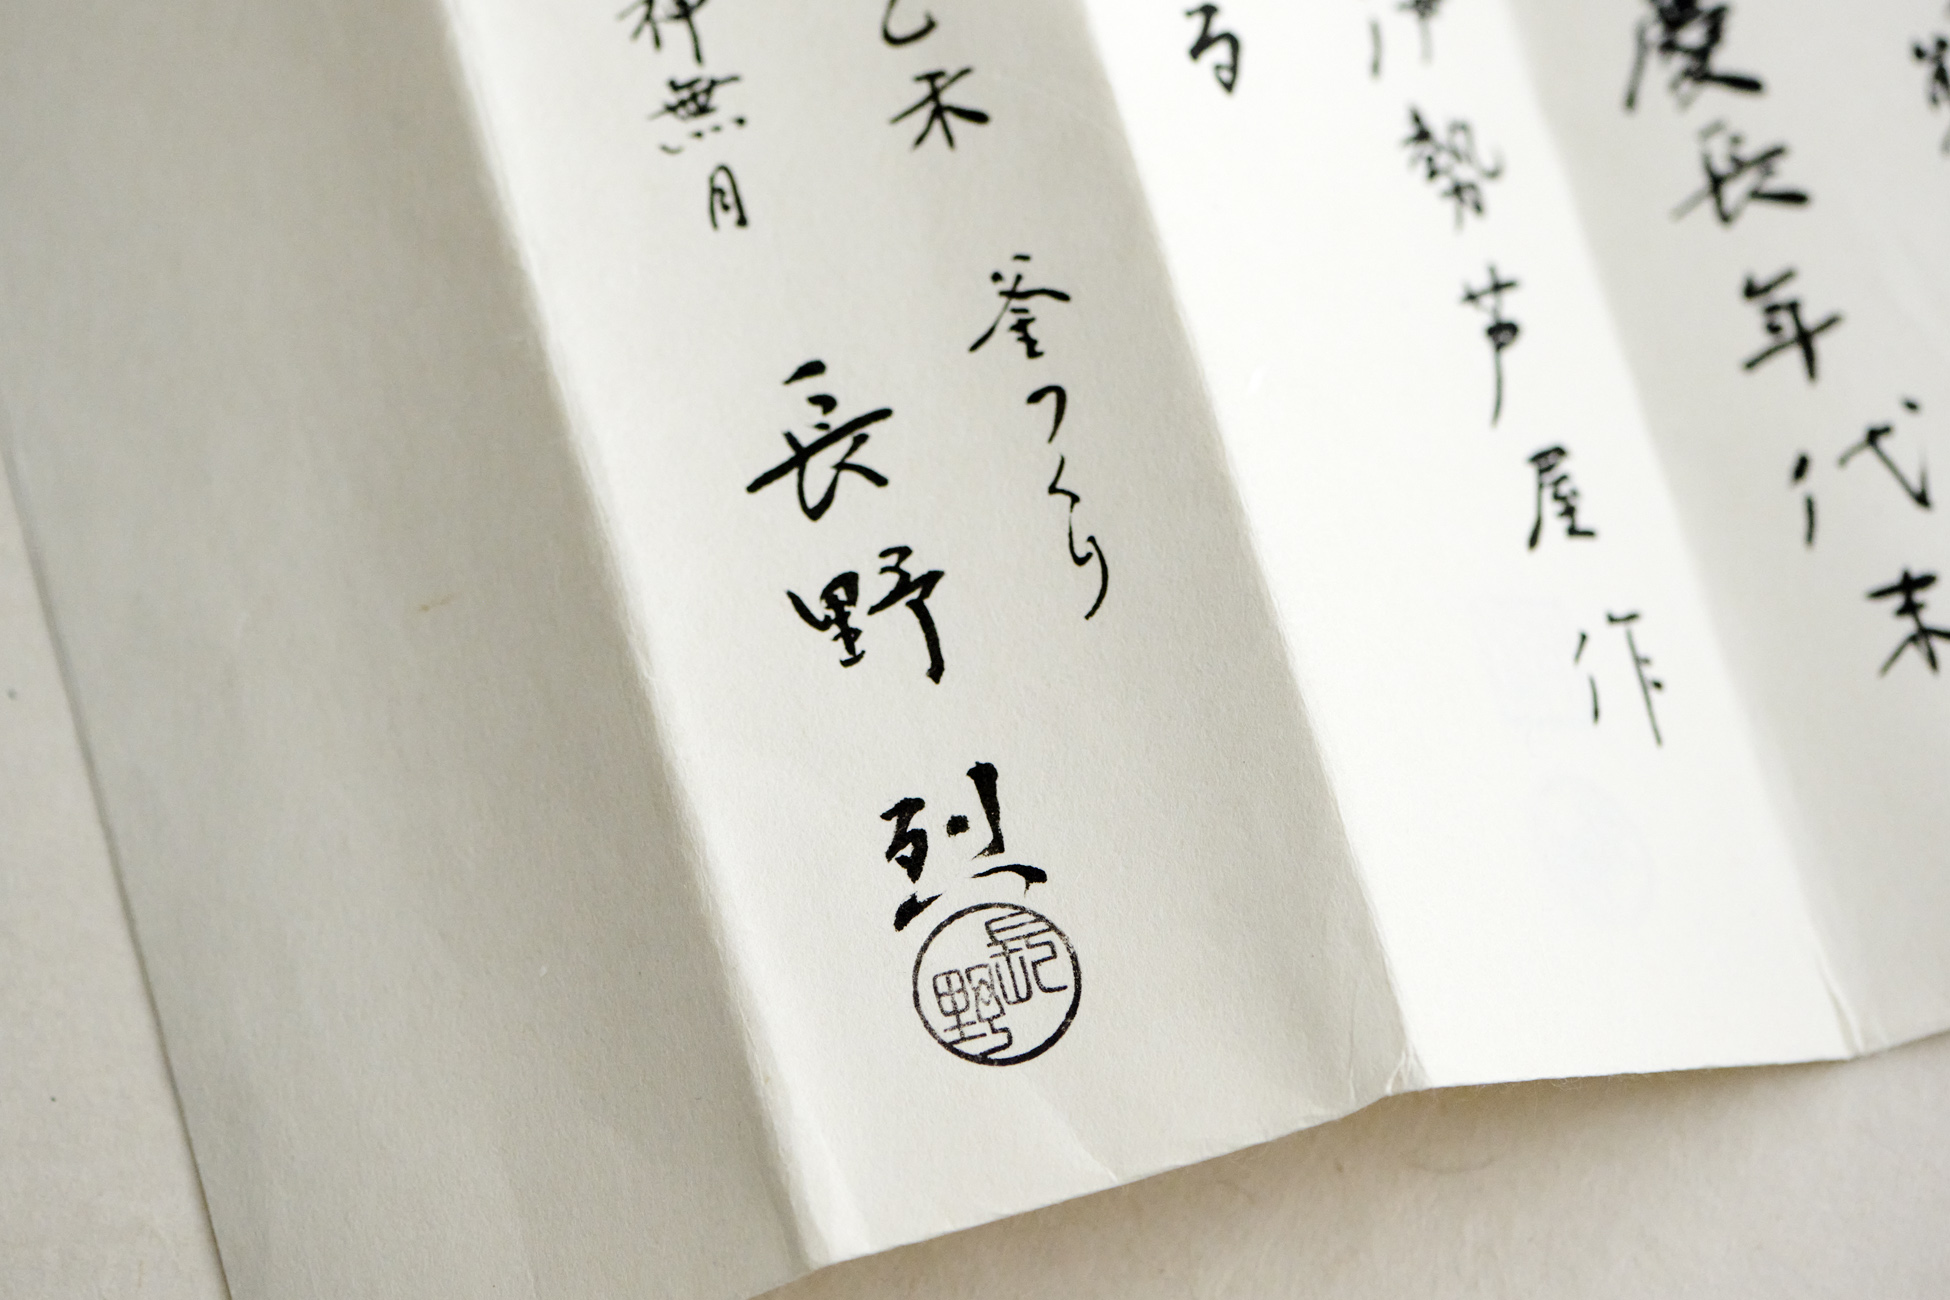 慶長年代末
伊勢芦屋作
る
乙未 釜つくり
神無月 長野 烈
長野